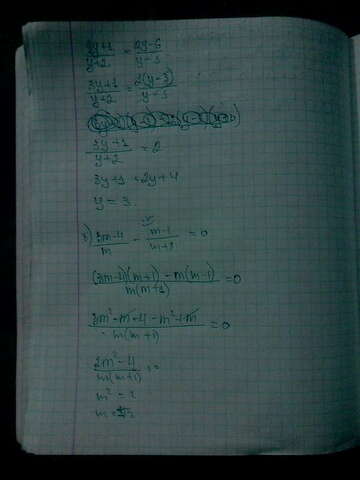 (3y+1)/(y+2) = (2y-6)/(y-3)
(3y+1)/(y+2) = 2(y-3)/(y-3)
(3y+1)/(y+2) = 2
3y+1 = 2y+4
y = 3.
(3m-4)/m - (m-1)/(m+1) = 0
((3m-4)(m+1) - m(m-1))/(m(m+1)) = 0
(3m²-m-4-m²+m)/(m(m+1)) = 0
(2m²-4)/(m(m+1)) =
m² = 2
m = ±√2